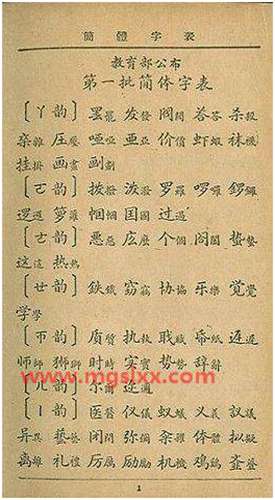 簡體字表
教育部公布
第一批简体字表
〔ㄚ韵〕罢罷 发發 阀閥 荅答 杀殺
杂雜 压壓 哑啞 亚亞 价價 虾蝦 袜襪
挂掛 画畫 划劃
〔ㄛ韵〕拨撥 泼潑 罗羅 啰囉 锣鑼
逻邏 箩籮 帼幗 国國 过過
〔ㄜ韵〕恶惡 庅麼 个個 阁閣 蛰蟄
这這 热熱
〔ㄝ韵〕鉄鐵 窃竊 协協 乐樂 觉覺
学學
〔ㄭ韵〕质質 执執 职職 帋紙 迟遲
师師 狮獅 时時 实實 势勢 辞辭
www.mgslxx.com
〔ㄦ韵〕尔爾 迩邇
〔ㄧ韵〕医醫 仪儀 蚁蟻 义義 议議
异異 艺藝 闭閉 弥彌 籴糴 体體 拟擬
离離 礼禮 厉厲 励勵 机機 鸡鷄
1